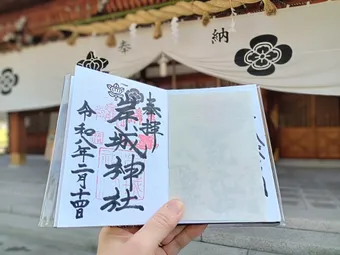 奉 納
奉拝
岸城神社
令和八年二月十四日